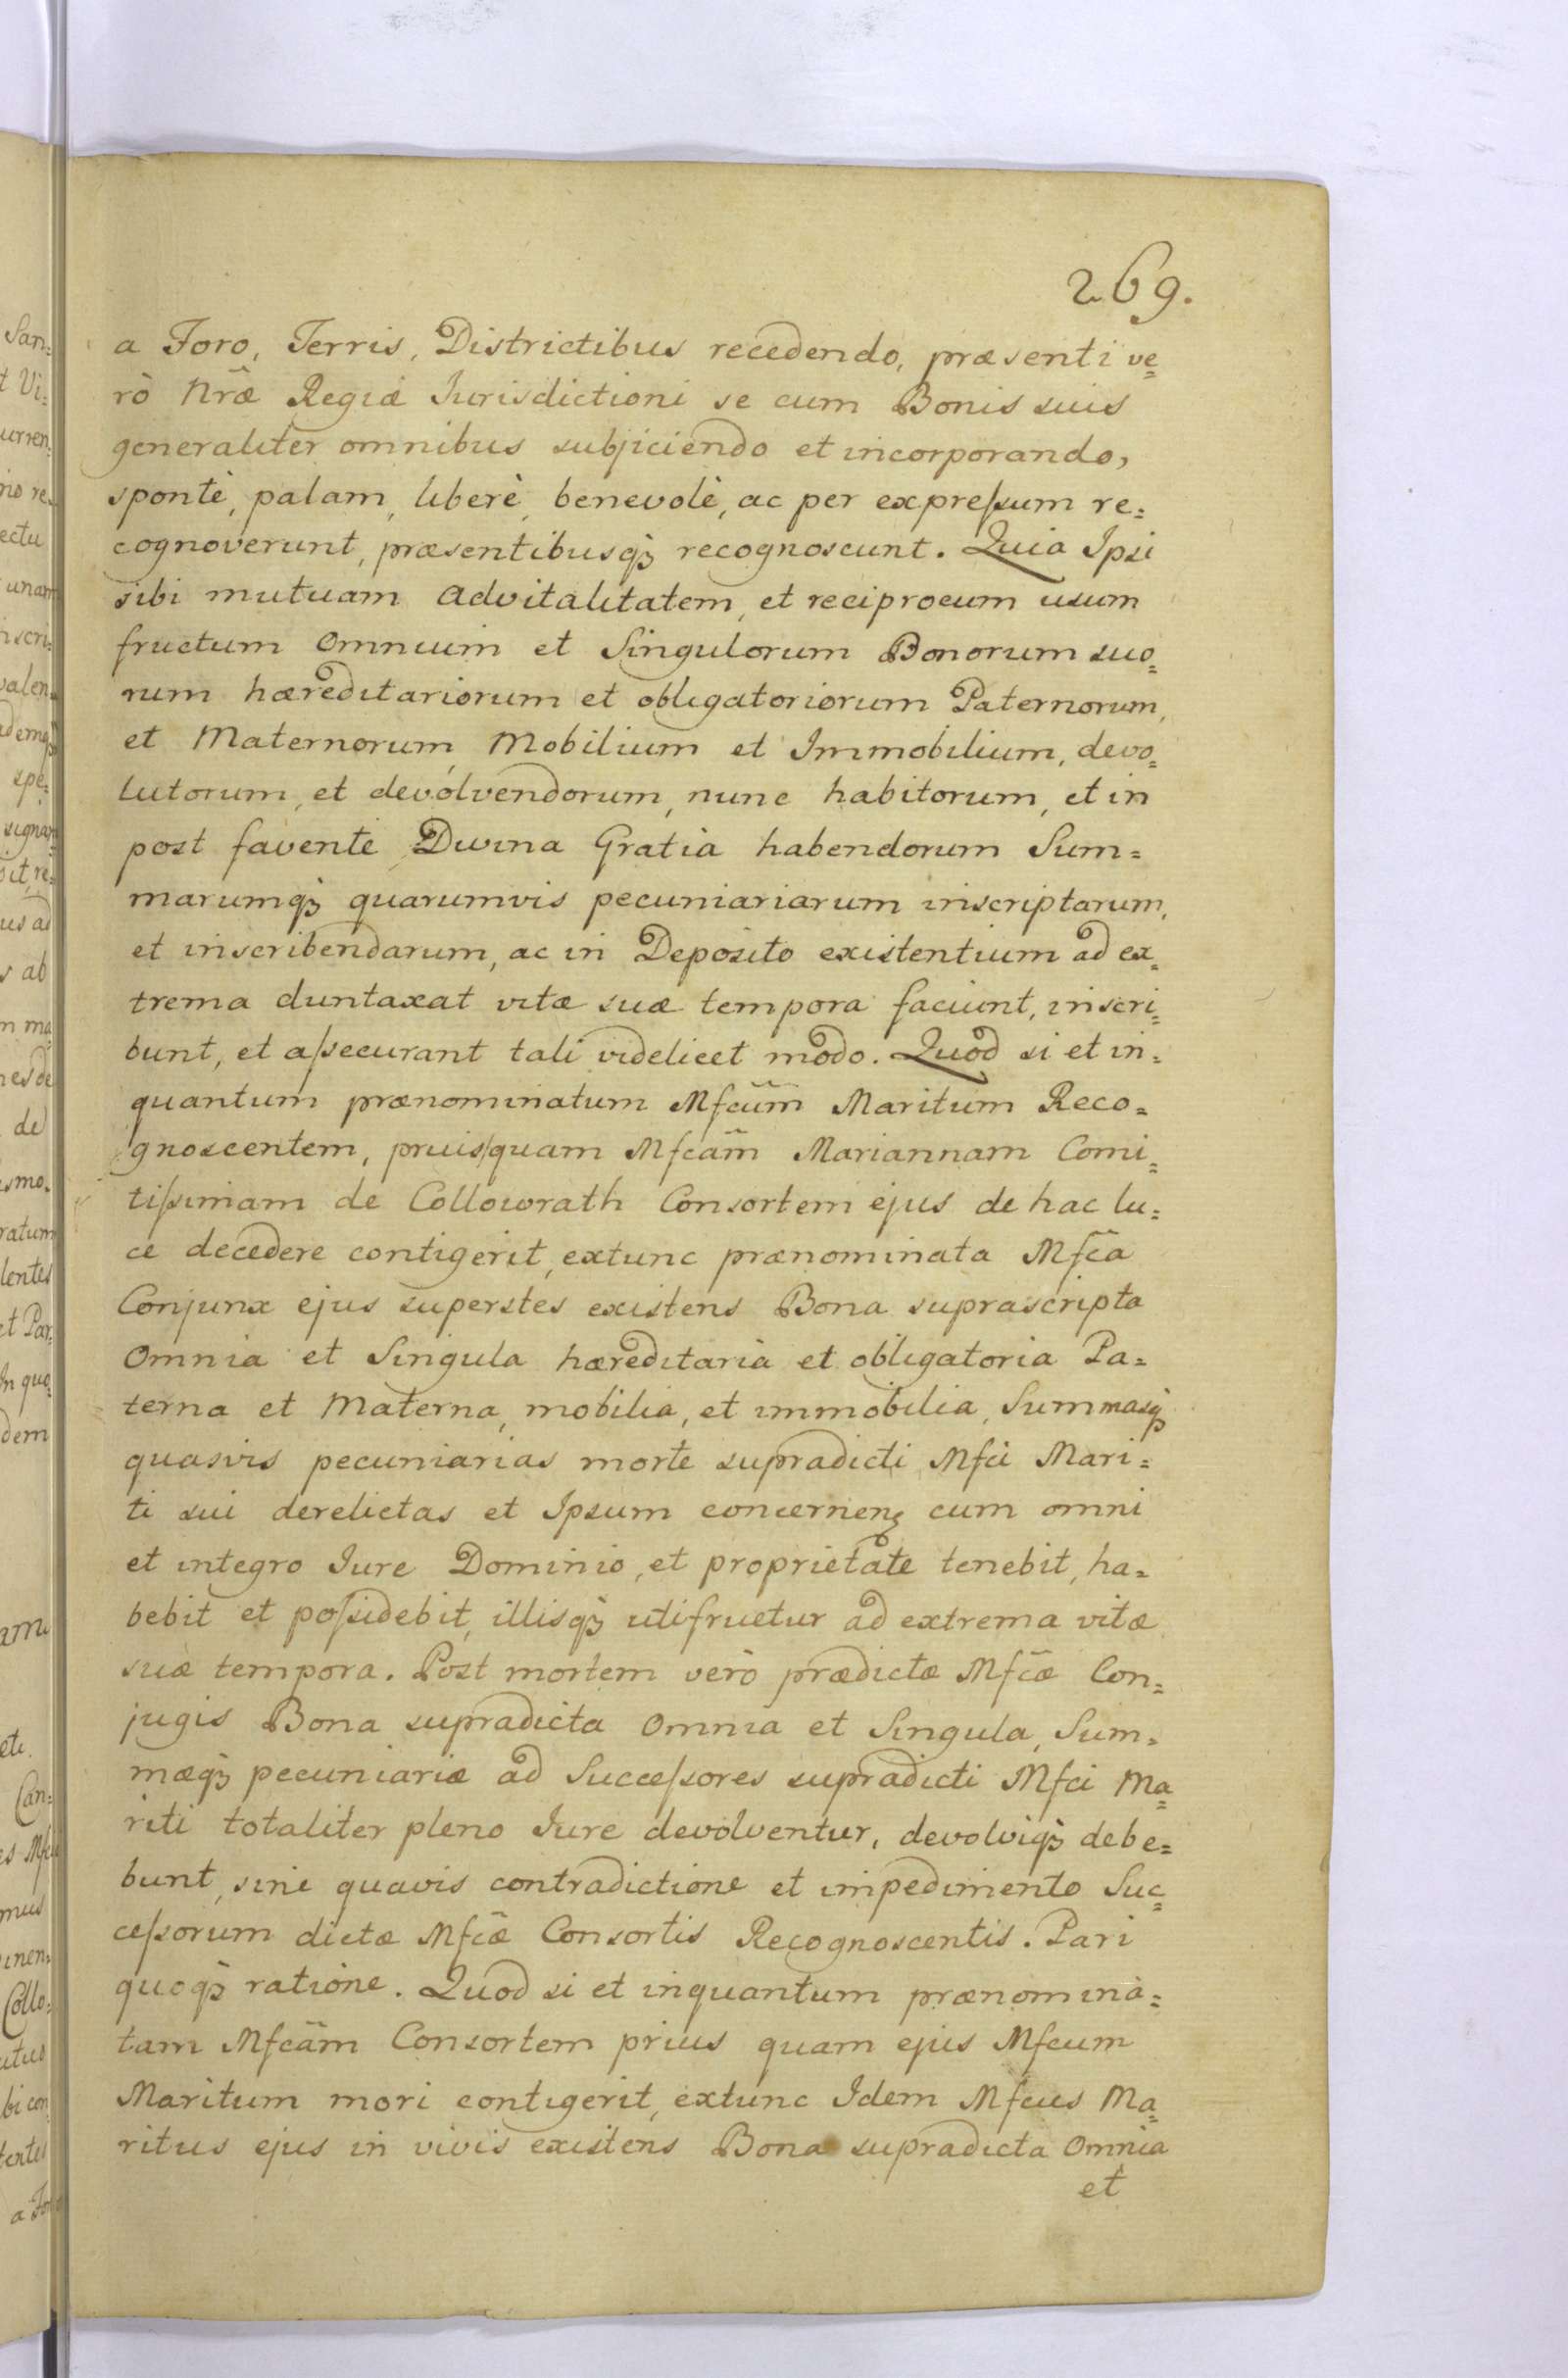 269.
a Foro, Terris, Districtibus recedendo, præsenti ve=
rò Nrã̃e Regiæ Jurisdictioni se cum Bonis suis
generaliter omnibus subjiciendo et incorporando,
spontè, palam, liberè, benevolè, ac per expreſsum re=
cognoverunt, præsentibusq₃ recognoscunt. Quia Ipsi
sibi mutuam advitalitatem, et reciprocum usum
fructum omnium et Singulorum Bonorum suo=
rum hæreditariorum et obligatoriorum Paternorum,
et Maternorum, Mobilium et Immobilium, devo=
lutorum, et devolvendorum, nunc habitorum, et in
post favente Divina Gratia habendorum Sum=
marumq₃ quarumvis pecuniariarum inscriptarum,
et inscribendarum, ac in Deposito existentium ad ex=
trema duntaxat vitæ suæ tempora faciunt, inscri=
bunt, et aſsecurant tali videlicet modo. Quod si et in=
quantum prænominatum Mfcum̃ Maritum Reco=
gnoscentem, prius/quam Mfcam̃ Mariannam Comi=
tiſsimam de Collowrath Consortem ejus de hac lu=
ce decedere contigerit, extunc prænominata Mfc̃a
Conjunx ejus superstes existens Bona suprascripta
Omnia et Singula hæreditaria et obligatoria Pa=
terna et Materna, mobilia, et immobilia, Summasq₃
quasvis pecuniarias morte supradicti Mfci Mari=
ti sui derelictas et Ipsum concernen₃ cum omni
et integro Jure Dominio, et proprietate tenebit, ha=
bebit et poſsidebit, illisq₃ utifruetur ad extrema vitæ
suæ tempora. Post mortem verò prædictæ Mfc̃æ Con=
jugis Bona supradicta Omnia et Singula, Sum=
mæq₃ pecuniariæ ad Succeſsores supradicti Mfci Ma=
riti totaliter pleno Jure devolventur, devolviq₃ debe=
bunt, sine quavis contradictione et impedimento Suc=
ceſsorum dictæ Mfc̃æ Consortis Recognoscentis. Pari
quoq₃ ratione. Quod si et inquantum prænomina=
tam Mfcam̃ Consortem prius quam ejus Mfcum
Maritum mori contigerit, extunc Idem Mfcus Ma=
ritus ejus in vivis existens Bona supradicta Omnia
et